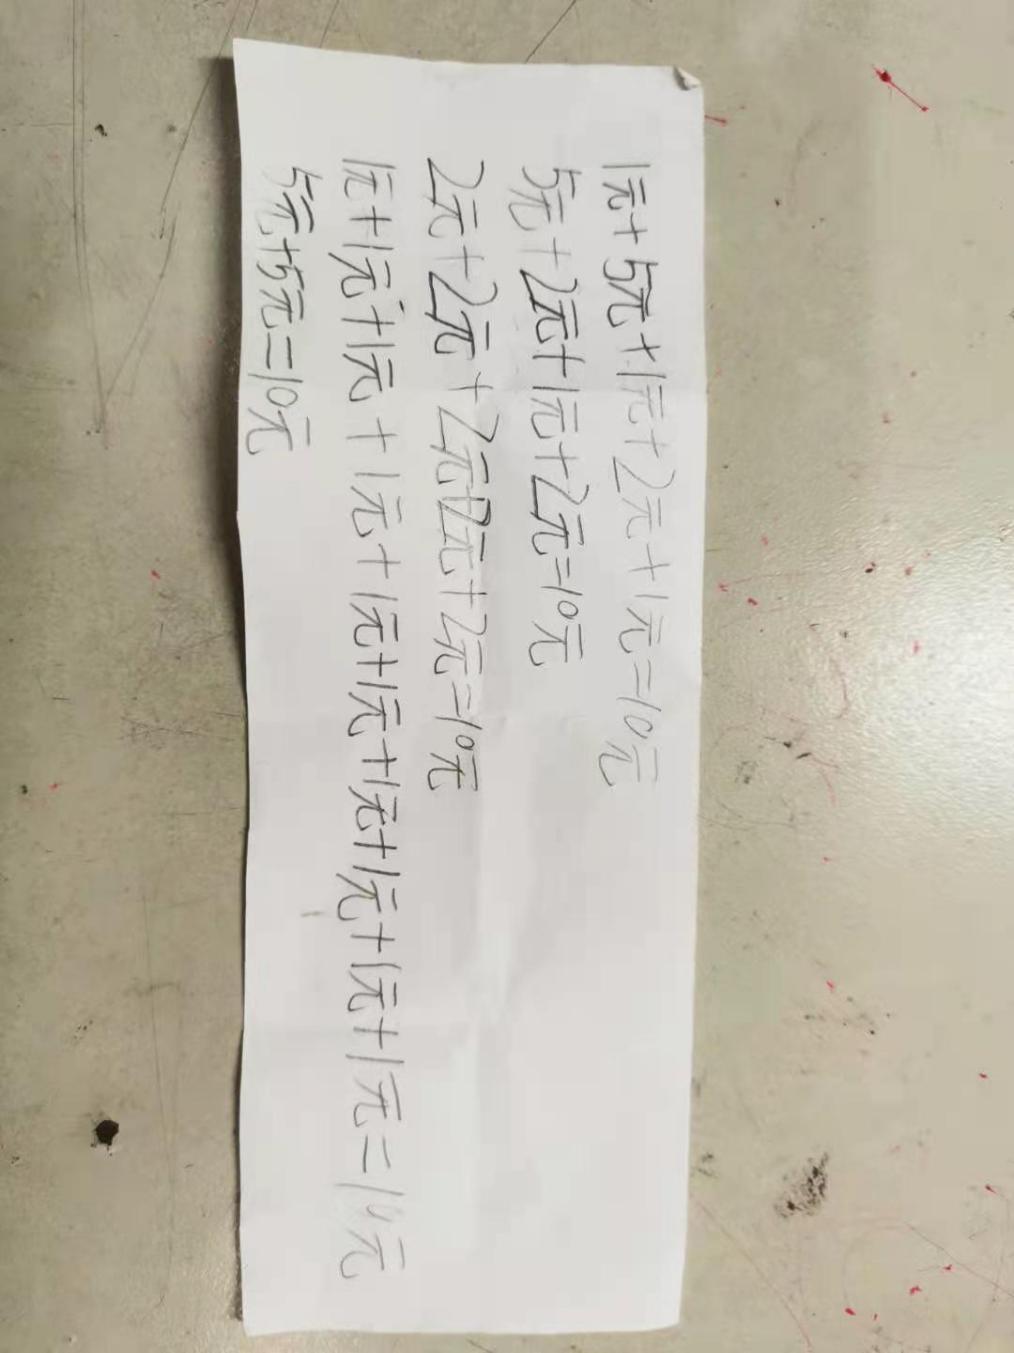 1元+5元+1元+2元+1元=10元
5元+2元+1元+2元=10元
2元+2元+2元+2元+2元=10元
1元+1元+1元+1元+1元+1元+1元+1元+1元+1元=10元
5元+5元=10元